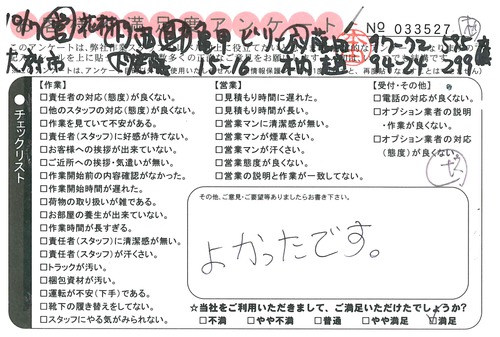 お客様満足度アンケート
No 033527
チェックリスト
【作業】
□責任者の対応(態度)が良くない。
□他のスタッフの対応(態度)が良くない。
□作業を見ていて不安がある。
□責任者(スタッフ)に好感が持てない。
□お客様への挨拶が出来ていない。
□ご近所への挨拶・気遣いが無い。
□作業開始前の内容確認がなかった。
□作業開始時間が遅れた。
□荷物の取り扱いが雑である。
□お部屋の養生が出来ていない。
□作業時間が長すぎる。
□責任者(スタッフ)に清潔感が無い。
□責任者(スタッフ)が汗くさい。
□トラックが汚い。
□梱包資材が汚い。
□運転が不安(下手)である。
□靴下の履き替えをしてない。
□スタッフにやる気がみられない。
【営業】
□見積もり時間に遅れた。
□見積もり時間が長い。
□営業マンに清潔感が無い。
□営業マンが煙草くさい。
□営業マンが汗くさい。
□営業態度が良くない。
□営業の説明と作業が一致してない。
【受付・その他】
□電話の対応が良くない。
□オプション業者の説明
・作業が良くない。
□オプション業者の対応
(態度)が良くない。
その他、ご意見・ご要望等ありましたらお書き下さい。
よかったです。
☆当社をご利用いただきまして、ご満足いただけたでしょうか?
□不満 □やや不満 □普通 □やや満足 □満足